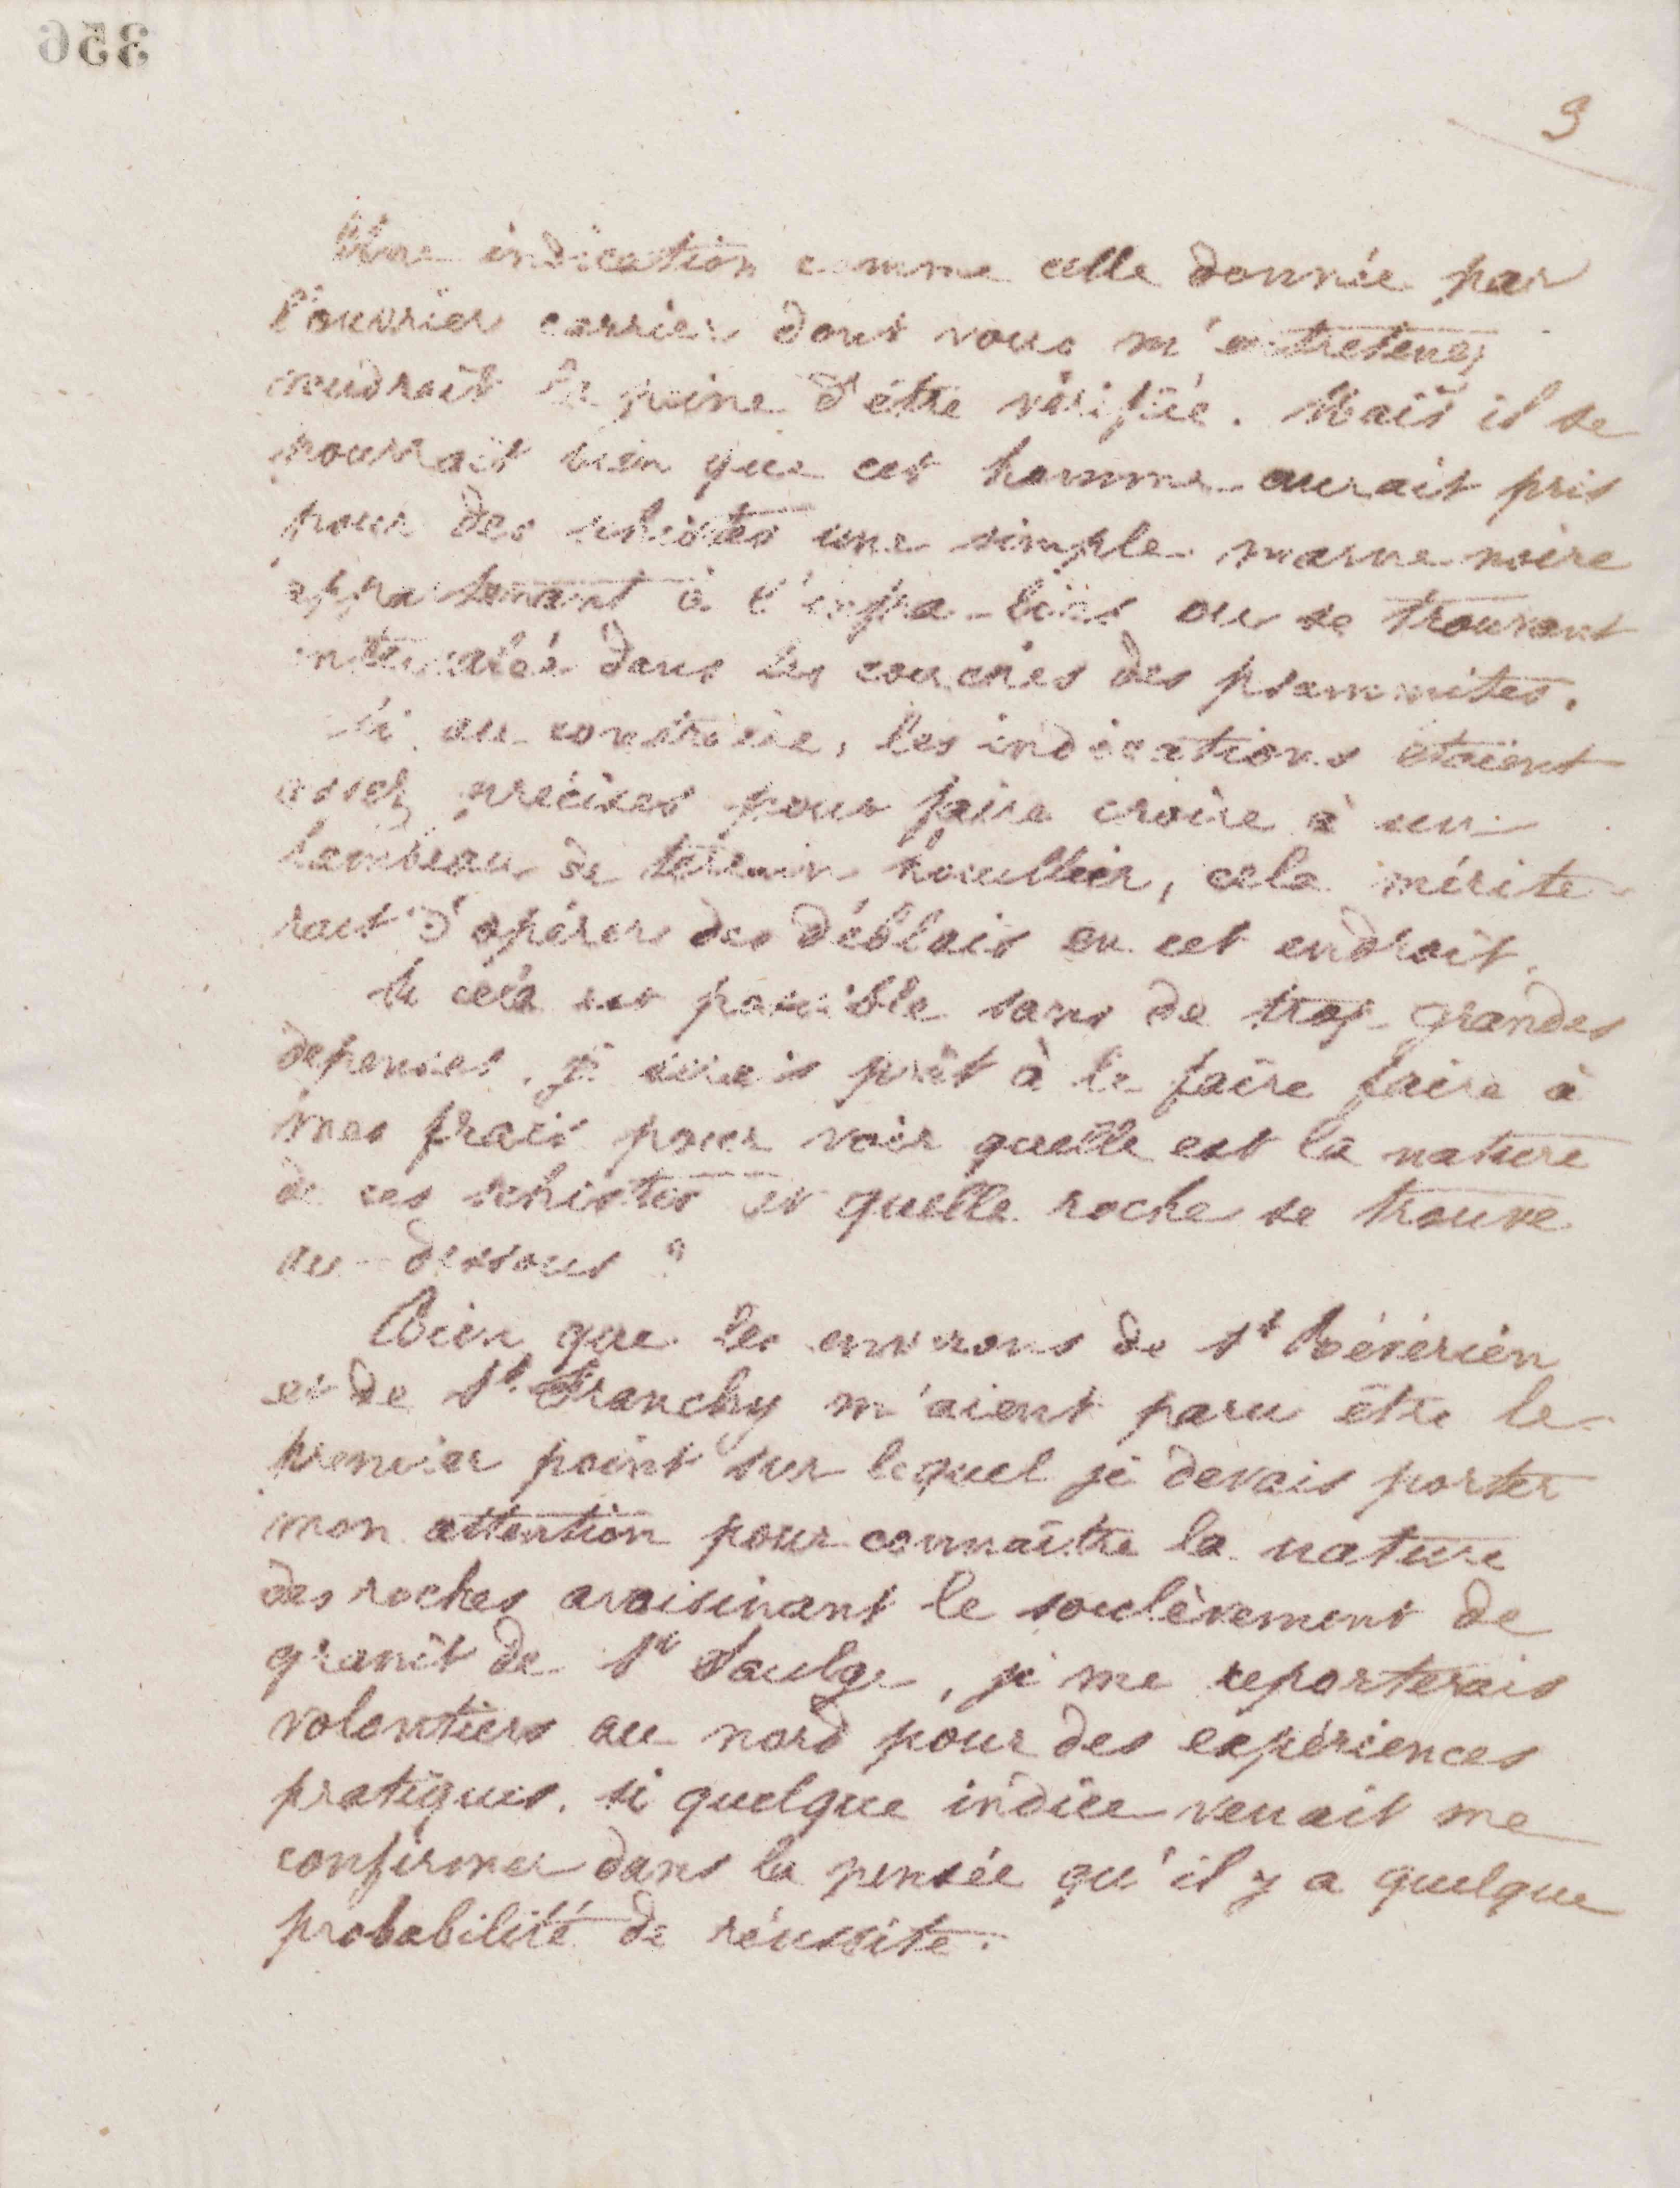 356
3
Une indication comme celle donnée par
l'ouvrier carrier dont vous m'entretenez
vaudrait la peine d'être vérifiée. Mais il se
pourrait bien que cet homme aurait pris
pour des schistes une simple marne noire
appartenant à l'infra-lias ou se trouvant
intercalée dans les couches des psammites.
Si au contraire, les indications étaient
assez précises pour faire croire à un
lambeau de terrain houillier, cela mérite-
rait d'opérer des déblais en cet endroit.
Si cela est possible sans de trop grandes
depenses, je serais prêt à le faire faire à
mes frais pour voir quelle est la nature
de ces schistes et quelle roche se trouve
au-dessous ?
Bien que les environs de St Révérien
et de St Franchy m'aient paru être le
premier point sur lequel je devais porter
mon attention pour connaître la nature
des roches avoisinant le soulèvement de
granit de St Saulge, je me reporterais
volontiers au nord pour des expériences
pratiques, si quelque indice venait me
confirmer dans la pensée qu'il y a quelque
probabilité de réussite.